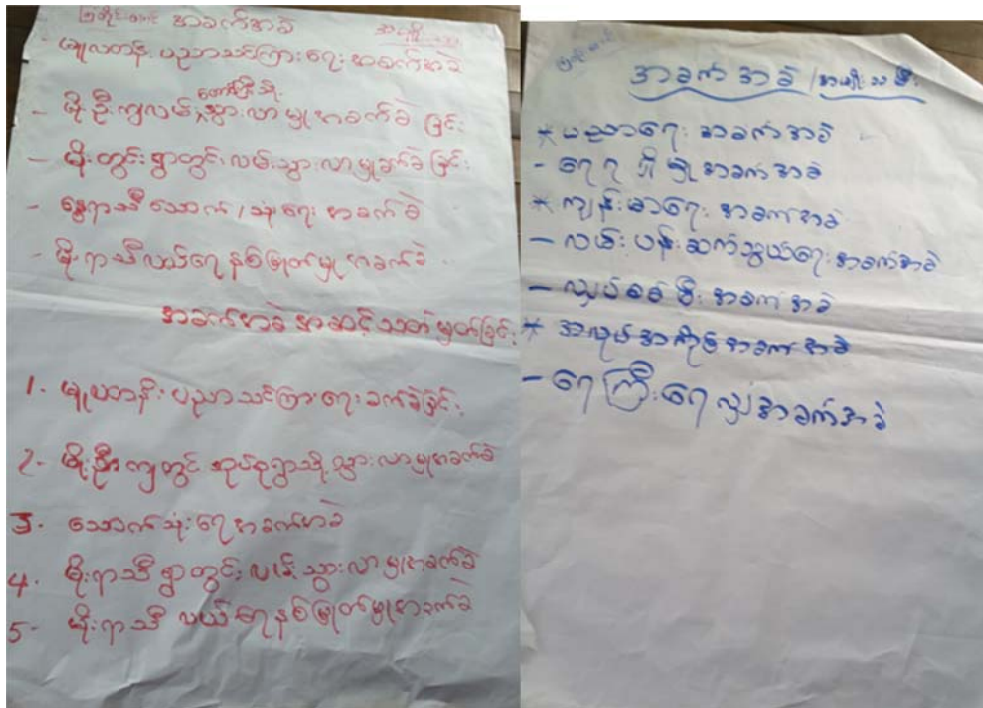 အခက်အခဲ
- မူလတန်း ပညာသင်ကြားရေး အခက်အခဲ
တောကြီးသို့
- မိုးဦးကျလမ်းသွားလာမှုအခက်ခဲ ခြင်း
- မိုးတွင်းရွာတွင်းလမ်းသွားလာမှုခက်ခဲခြင်း
- နွေရာသီ သောက်/သုံးရေ အခက်ခဲ
- မိုးရာသီလယ်ရေနစ်မြုတ်မှုအခက်ခဲ
အခက်အခဲအဆင့်သတ်မှတ်ခြင်း
1. မူလတန်း ပညာသင်ကြားရေးခက်ခဲခြင်း
2- မိုးဦးကျတွင် အုပ်စုရွာသို့သွားလာမှုအခက်ခဲ
3. သောက်သုံးရေအခက်အခဲ
4. မိုးရာသီရွာတွင်းလမ်းသွားလာမှုအခက်ခဲ
5- မိုးရာသီ လယ်ရေနစ်မြုတ်မှုအခက်ခဲ
အခက်အခဲ/အမျိုးသမီး
* ပညာရေးအခက်အခဲ
- ရေရရှိမှုအခက်အခဲ
* ကျန်းမာရေးအခက်အခဲ
- လမ်းပန်းဆက်သွယ်ရေးအခက်အခဲ
- လျှပ်စစ်မီးအခက်အခဲ
* အလုပ်အကိုင်အခက်အခဲ
- ရေကြီးရေလျှံအခက်အခဲ